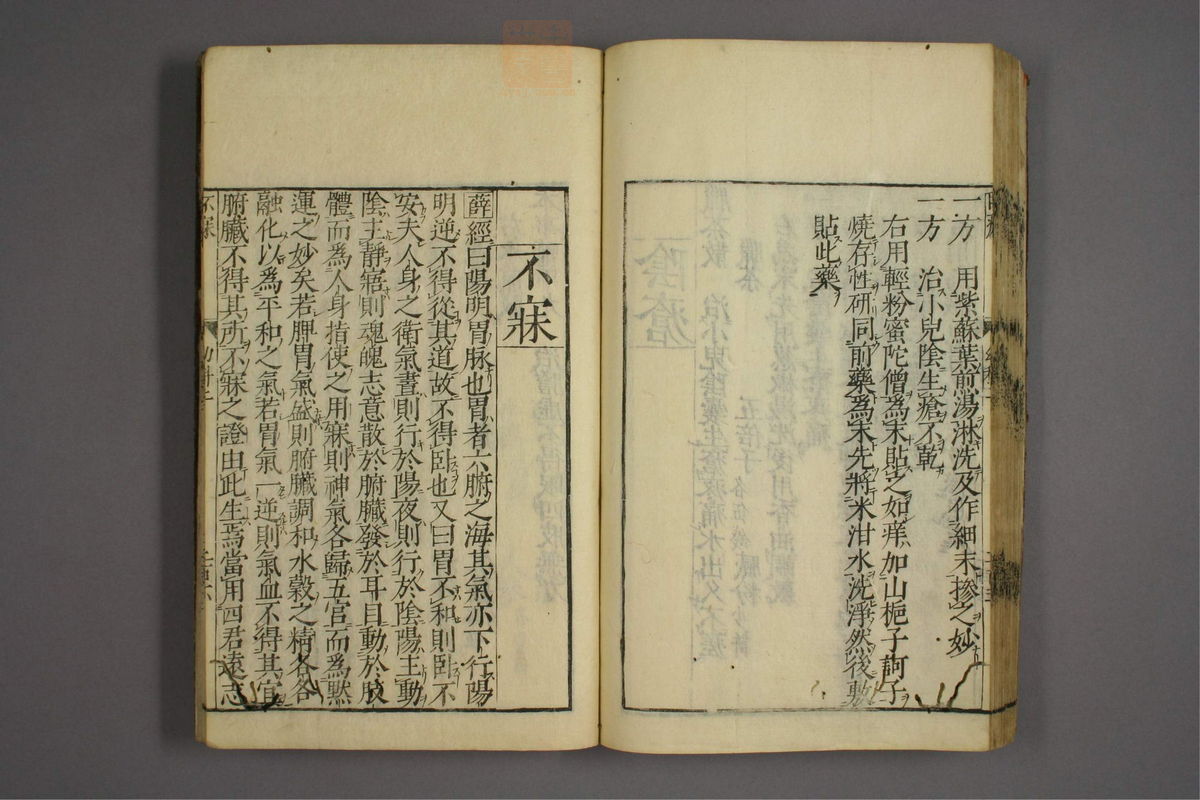 一方　用紫蘇葉煎湯淋洗及作細末摻之妙
一方　治小兒陰生瘡不乾
右用輕粉蜜陀僧爲末貼之如痒加山梔子訶子
燒存性硏同前藥爲末先將米泔水洗淨然後敷
貼此藥
不寐
薛經曰陽明胃脉也胃者六腑之海其氣亦下行陽
明逆不得從其道故不得卧也又曰胃不和則卧不
安夫人身之衛氣晝則行於陽夜則行於陰陽主動
陰主靜寤則魂魄志意散於腑臟發於耳目動於肢
體而爲人身指使之用寐則神氣各歸五官而爲黙
運之妙矣若脾胃氣盛則腑臟調和水穀之精各各
融化以爲平和之氣若胃氣一逆則氣血不得其宜
腑臟不得其所不寐之證由此生焉當用四君遠志
不寐